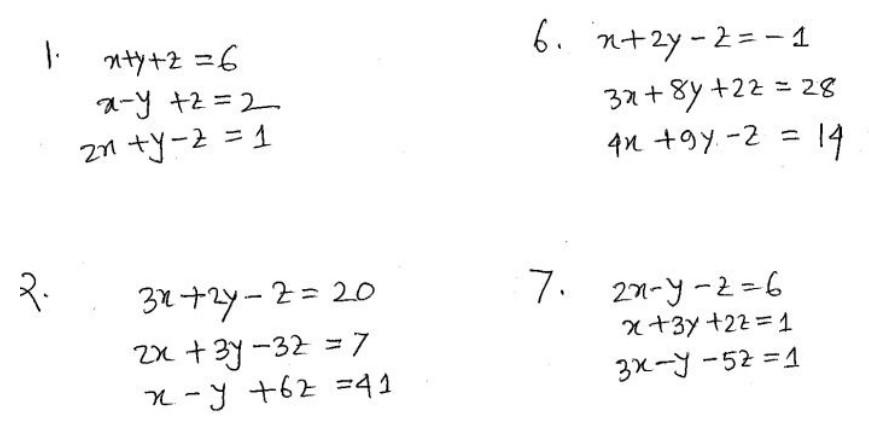 1. x+y+z=6
x-y+z=2
2x+y-z=1
2. 3x+2y-z=20
2x+3y-3z=7
x-y+6z=41
6. x+2y-z=-1
3x+8y+2z=28
4x+9y-z=14
7. 2x-y-z=6
x+3y+2z=1
3x-y-5z=1